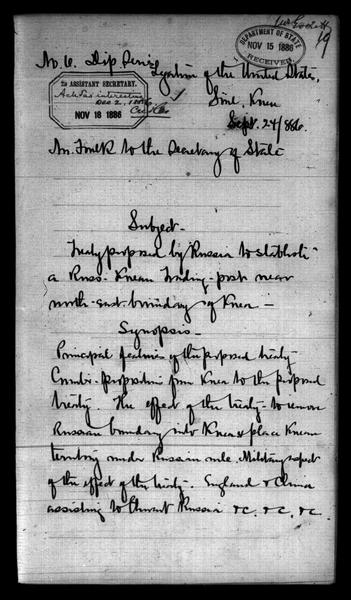 DEPARTMENT OF STATE
NOV 15 1886
RECEIVED
No. 6. Dip. Series
Legation of the United States,
2D ASSISTANT SECRETARY.
Ack as interesting
Dec 2, 1886
NOV 18 1886
Söul, Korea
Sept. 24/886.
Mr. Foulk to the Secretary of State
Subject-
Treaty proposed by Russia to establish
a Russ-Korean trading-post near
north-east boundary of Korea -
Synopsis-
Principal features of the proposed treaty
Counter-proposition from Korea to the proposed
treaty. The effect of the treaty to remove
Russian boundary into Korea & place Korean
territory under Russian rule. Military aspect
of the effect of the treaty. England & China
assisting to thwart Russia &c. &c. &c